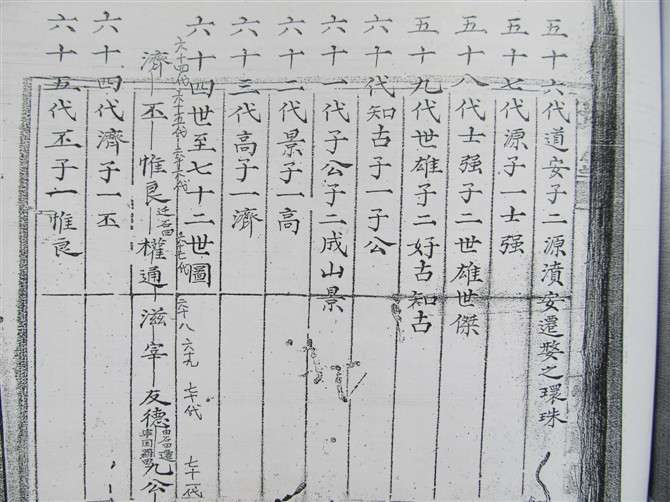 五十六代道安子二源濆安遷婺之環珠
五十七代源子一士强
五十八代士强子二世雄世傑
五十九代世雄子二好古知古
六十代知古子一子公
六十一代子公子二成山景
六十二代景子一高
六十三代高子一濟
六十四世至七十二世圖
六十四代 六十五代 六十六代 六十七代 六十八 六十九 七十代 七十一代
濟 丕 惟良 迁石田 權通 滋宰 友德 由石田遷寧国 九公
六十四代濟子一丕
六十五代丕子一惟良